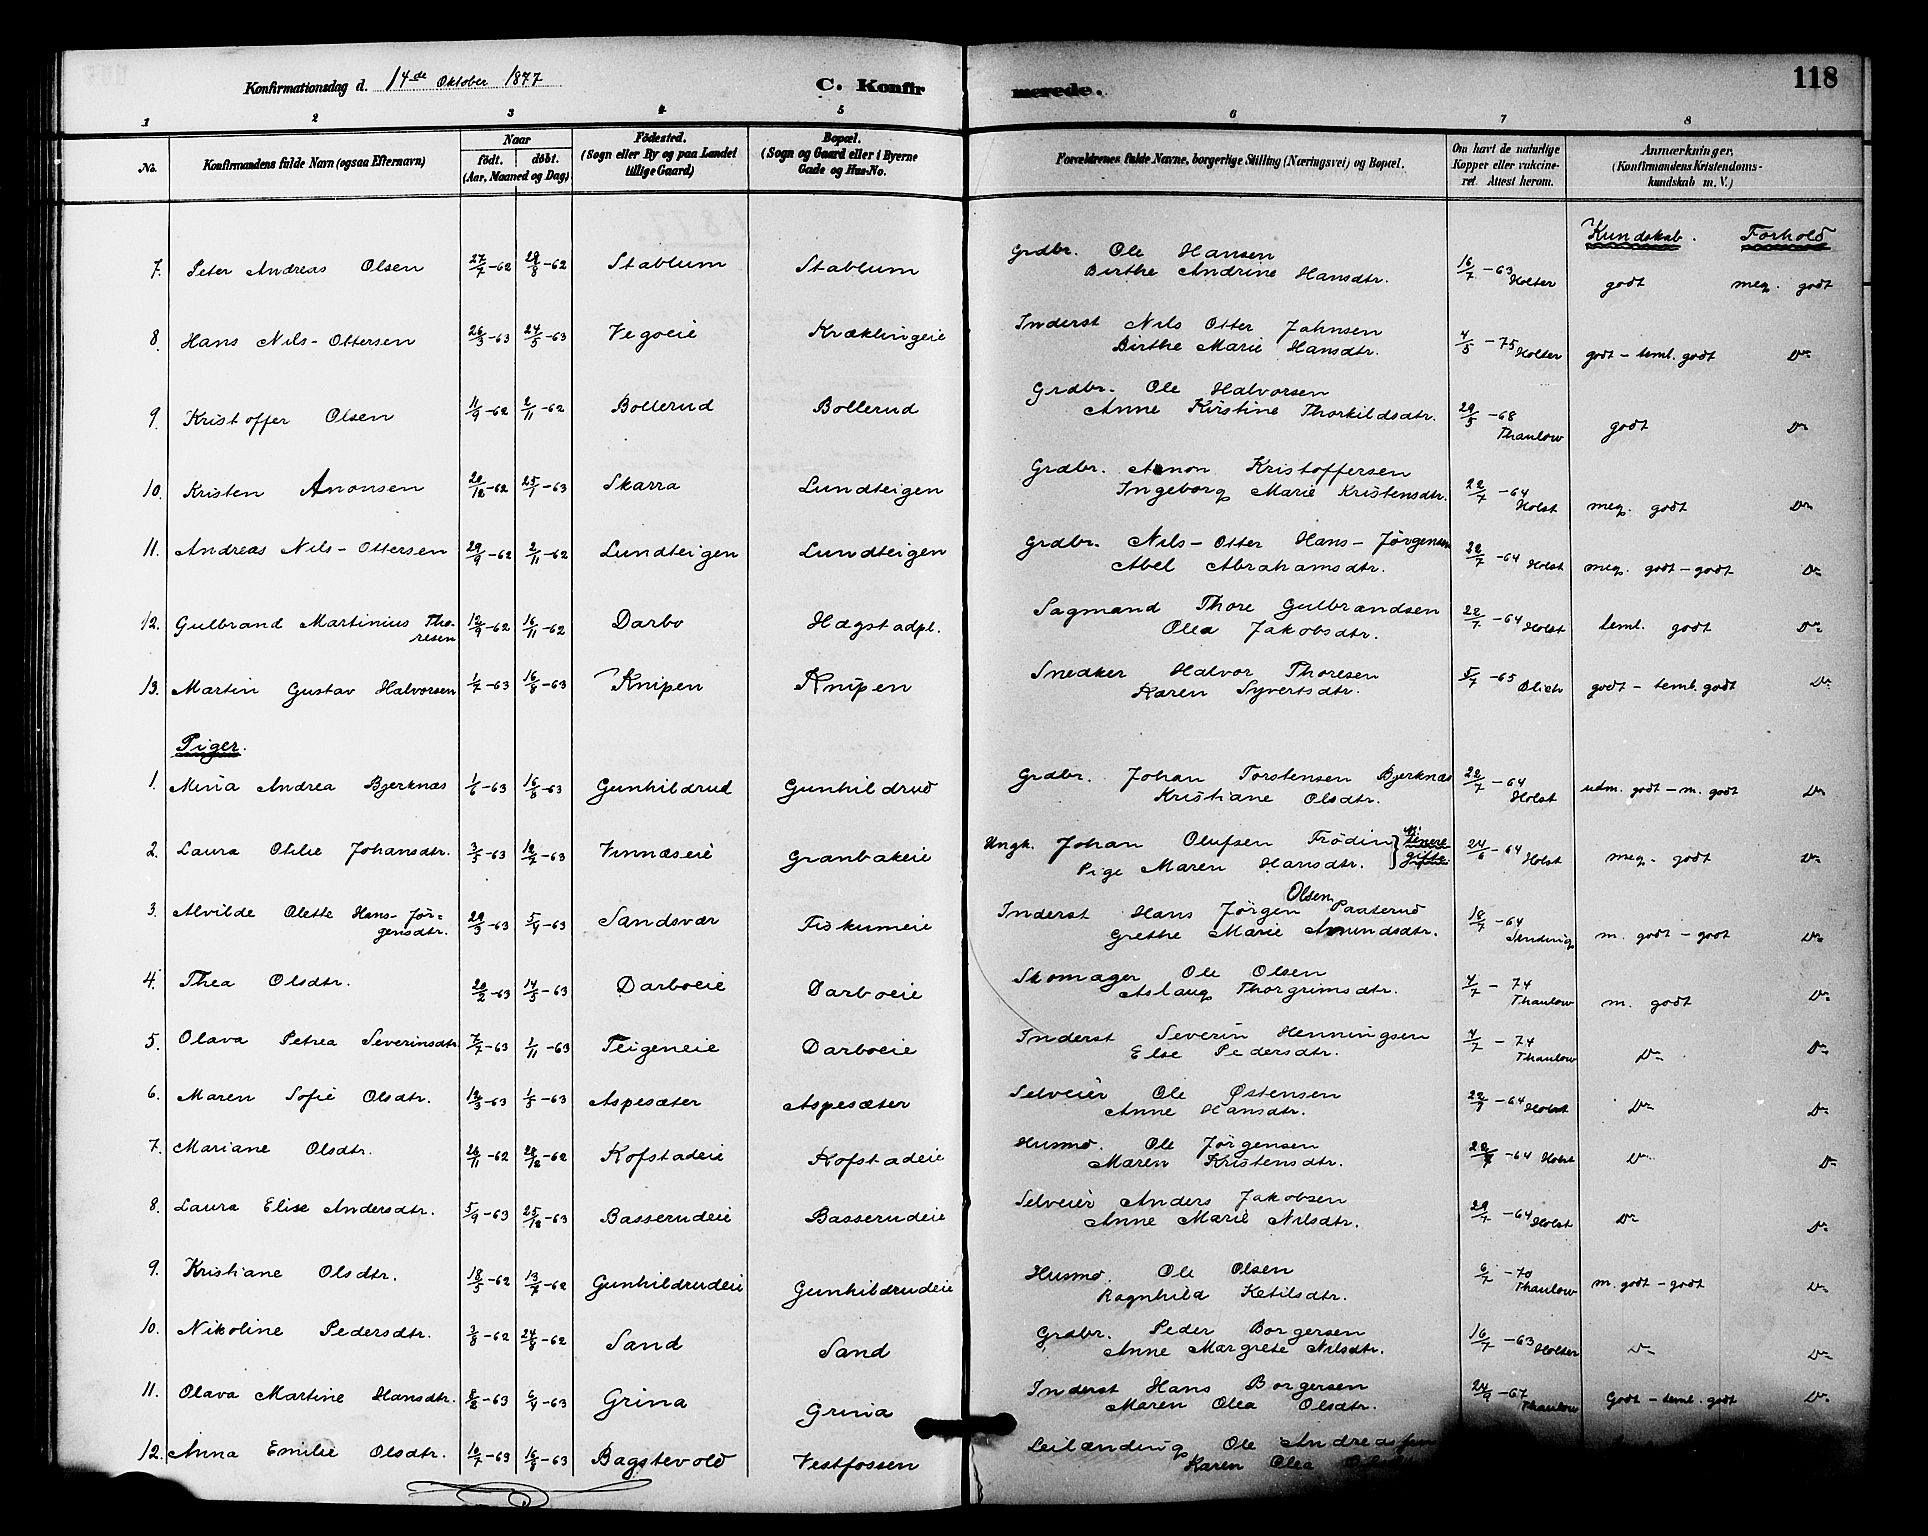 118
Konfirmationsdag d. 14de Oktober 1877 C. Konfirmerede.
1 2 3 4 5 6 7 8
No. Konfirmandens fulde Navn (ogsaa Efternavn) Naar födt. döbt. (Aar, Maaned og Dag) Födested. (Sogn eller By og paa Landet tillige Gaard) Bopæl. (Sogn og Gaard eller i Byerne Gade og Hus-No. Forældrenes fulde Navne, borgerlige Stilling (Næringsvei) og Bopæl. Om havt de naturlige Kopper eller vakcineret. Attest herom. Anmærkninger, (Konfirmandens Kristendomskundskab m. V.)
Kundskab. Forhold
7. Peter Andreas Olsen 27/7-62 29/8-62 Stablum Stablum Grdbr. Ole Hansen 16/7-63 Holter godt meg. godt
Birthe Andrine Hansdtr.
8. Hans Nils-Ottersen 26/3-63 24/5-63 Vegoeie Kræklingeie Inderst Nils Otter Jahnsen 4/5-75 Holter godt - teml. godt Do
Birthe Marie Hansdtr.
9. Kristoffer Olsen 11/9-62 2/11-62 Bollerud Bollerud Grdbr. Ole Halvorsen 29/5-68 Thaulow godt Do
Anne Kirstine Thorkildsdtr.
10. Kristen Anonsen 20/12-62 25/1-63 Skarra Lundteigen Grdbr. Anon Kristoffersen 22/7-64 Holst meg. godt Do
Ingeborg Marie Kristensdtr.
11. Andreas Nils-Ottersen 29/9-62 2/11-62 Lundteigen Lundteigen Grdbr. Nils-Otter Hans-Jørgensen 22/7-64 Holst meg. godt - godt Do
Abel Abrahamsdtr.
12. Gulbrand Martinius Tho- 12/9-62 16/11-62 Darbo Hægstadpl. Sagmand Thore Gulbrandsen 22/7-64 Holst teml. godt Do
resen Olea Jakobsdtr.
13. Martin Gustav Halvorsen 1/7-63 16/8-63 Knipen Knipen Snedker Halvor Thoresen 5/7-65 Blich godt - teml. godt Do
Karen Syvertsdtr.
Piger.
1. Mina Andrea Bjerknæs 1/1-63 16/8-63 Gunhildrud Gunhildrud Grdbr. Johan Torstensen Bjerknæs 22/7-64 Holst udm. godt - m. godt Do
Kristiane Olsdtr.
2. Laura Otilie Johansdtr. 3/5-63 12/7-63 Vinnæseie Granbakeie Ungk. Johan Olufsen Frödin 24/6-64 Holst meg. godt Do
Pige Maren Hansdtr.
3. Alvilde Olette Hans-Jør- 29/3-63 5/4-63 Sandsvær Fiskumeie Inderst Hans Jørgen Olsen Paaterud 18/7-64 m. godt - godt Do
gensdtr. Grethe Marie Amundsdtr.
4. Thea Olsdtr. 20/2-63 14/5-63 Darboeie Darboeie Skomager Ole Olsen 4/7-74 Thaulow m. godt Do
Aslaug Thorgrimsdtr.
5. Olava Petrea Severinsdtr. 7/7-63 1/11-63 Teigeneie Darboeie Inderst Severin Henningsen 4/7-74 Thaulow Do Do
Else Pedersdtr.
6. Maren Sofie Olsdtr. 12/3-63 1/5-63 Aspesæter Aspesæter Selveier Ole Østensen 22/7-64 Holst Do Do
Anne Hansdtr.
7. Mariane Olsdtr. 26/11-62 28/12-62 Kofstadeie Kofstadeie Husmd. Ole Jørgensen 22/7-64 Holst Do Do
Maren Kristensdtr.
8. Laura Elise Andersdtr. 5/9-63 25/12-63 Basserudeie Basserudeie Selveier Anders Jakobsen 29/7-64 Holst Do Do
Anne Marie Nilsdtr.
9. Kristiane Olsdtr. 18/5-62 13/7-62 Gunhildrudeie Gunhildrudeie Husmd. Ole Olsen 6/7-70 Thaulow m. godt - godt Do
Ragnhild Ketilsdtr.
10. Nikoline Pedersdtr. 3/8-62 24/8-62 Sand Sand Grdbr. Peder Borgersen 16/7-63 Holter Do Do
Anne Margrete Nilsdtr.
11. Olava Martine Hansdtr. 8/2-63 6/4-63 Grina Grina Inderst Hans Borgersen 24/9-67 Thaulow Godt - teml. godt Do
Maren Olea Olsdtr.
12. Anna Emilie Olsdtr. 10/7-63 16/8-63 Bagstevold Vestfossen Leilænding Ole Andreas
Karen Olea